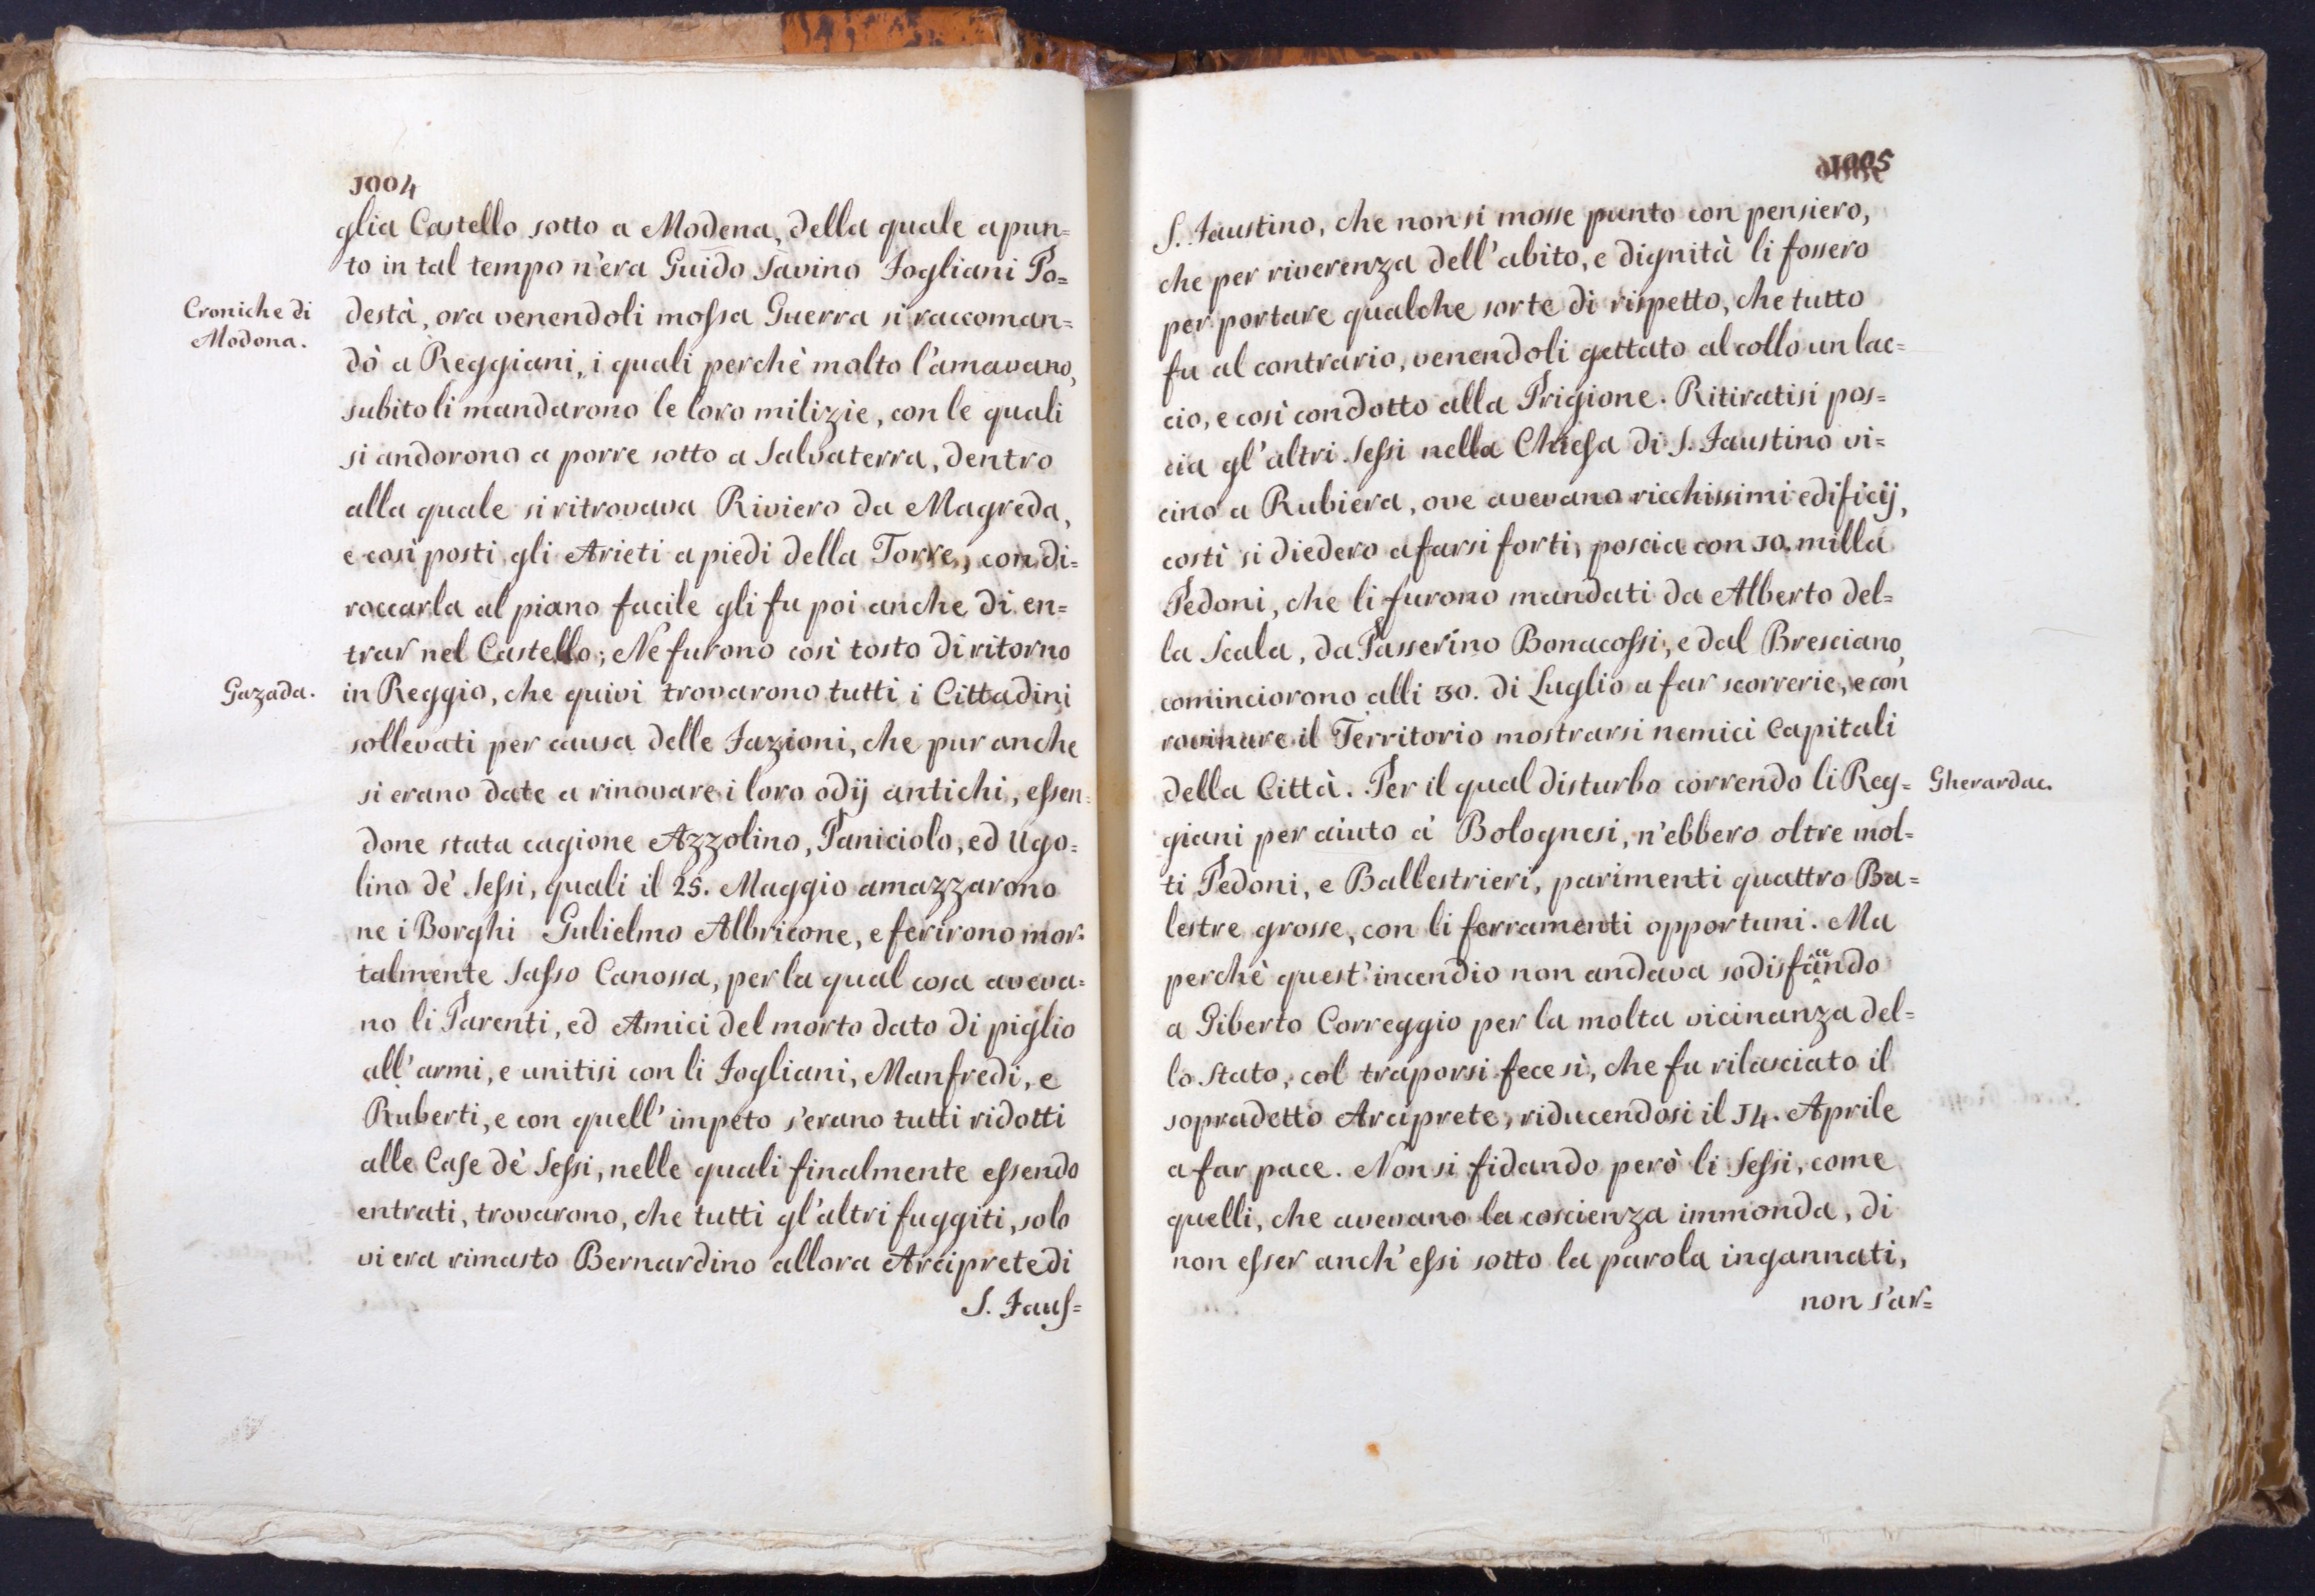 1004
glia Castello sotto a Modena, della quale apun=
to in tal tempo n'era Guido Savino Fogliani Po=
Croniche di
Modona.
destà, ora venendoli mossa Guerra si raccoman=
dò a Reggiani, i quali perchè molto l'amavano,
subito li mandarono le loro milizie, con le quali
si andorono a porre sotto a Salvaterra, dentro
alla quale si ritrovava Riviero da Magreda,
e così posti gli Arieti a piedi della Torre, con di=
roccarla al piano facile gli fu poi anche di en=
trar nel Castello; Ne furono così tosto di ritorno
Gazada.
in Reggio, che quivi trovarono tutti i Cittadini
sollevati per causa delle Fazioni, che pur anche
si erano date a rinovare i loro odij antichi, essen=
done stata cagione Azzolino, Paniciolo, ed Ugo=
lino dè Sessi, quali il 25. Maggio amazzarono
ne i Borghi Gulielmo Albricone, e ferirono mor=
talmente Sasso Canossa, per la qual cosa aveva=
no li Parenti, ed Amici del morto dato di piglio
all'armi, e unitisi con li Fogliani, Manfredi, e
Ruberti, e con quell'impeto s'erano tutti ridotti
alle Case dè Sessi, nelle quali finalmente essendo
entrati, trovarono, che tutti gl'altri fuggiti, solo
vi era rimasto Bernardino allora Arciprete di
S. Faus=
1005
S. Faustino, che non si mosse punto con pensiero,
che per riverenza dell'abito, e dignità li fossero
per portare qualche sorte di rispetto, che tutto
fu al contrario, venendoli gettato al collo un lac=
cio, e così condotto alla Prigione. Ritiratisi pos=
cia gl'altri Sessi nella Chiesa di S. Faustino vi=
cino a Rubiera, ove avevano ricchissimi edificij,
costì si diedero a farsi forti, poscia con 10. milla
Pedoni, che li furono mandati da Alberto del=
la Scala, da Passerino Bonacossi, e dal Bresciano,
cominciorono alli 30. di Luglio a far scorrerie, e con
rovinare il Territorio mostrarsi nemici Capitali
della Città. Per il qual disturbo correndo li Reg=
Gherardac.
giani per aiuto à Bolognesi, n'ebbero oltre mol=
ti Pedoni, e Ballestrieri, parimenti quattro Ba=
lestre grosse, con li ferramenti opportuni. Ma
perchè quest'incendio non andava sodisfacendo
a Giberto Correggio per la molta vicinanza del=
lo Stato, col traporsi fece sì, che fu rilasciato il
sopradetto Arciprete, riducendosi il 14. Aprile
a far pace. Non si fidando però li Sessi, come
quelli, che avevano la coscienza immonda, di
non esser anch'essi sotto la parola ingannati,
non s'ar=